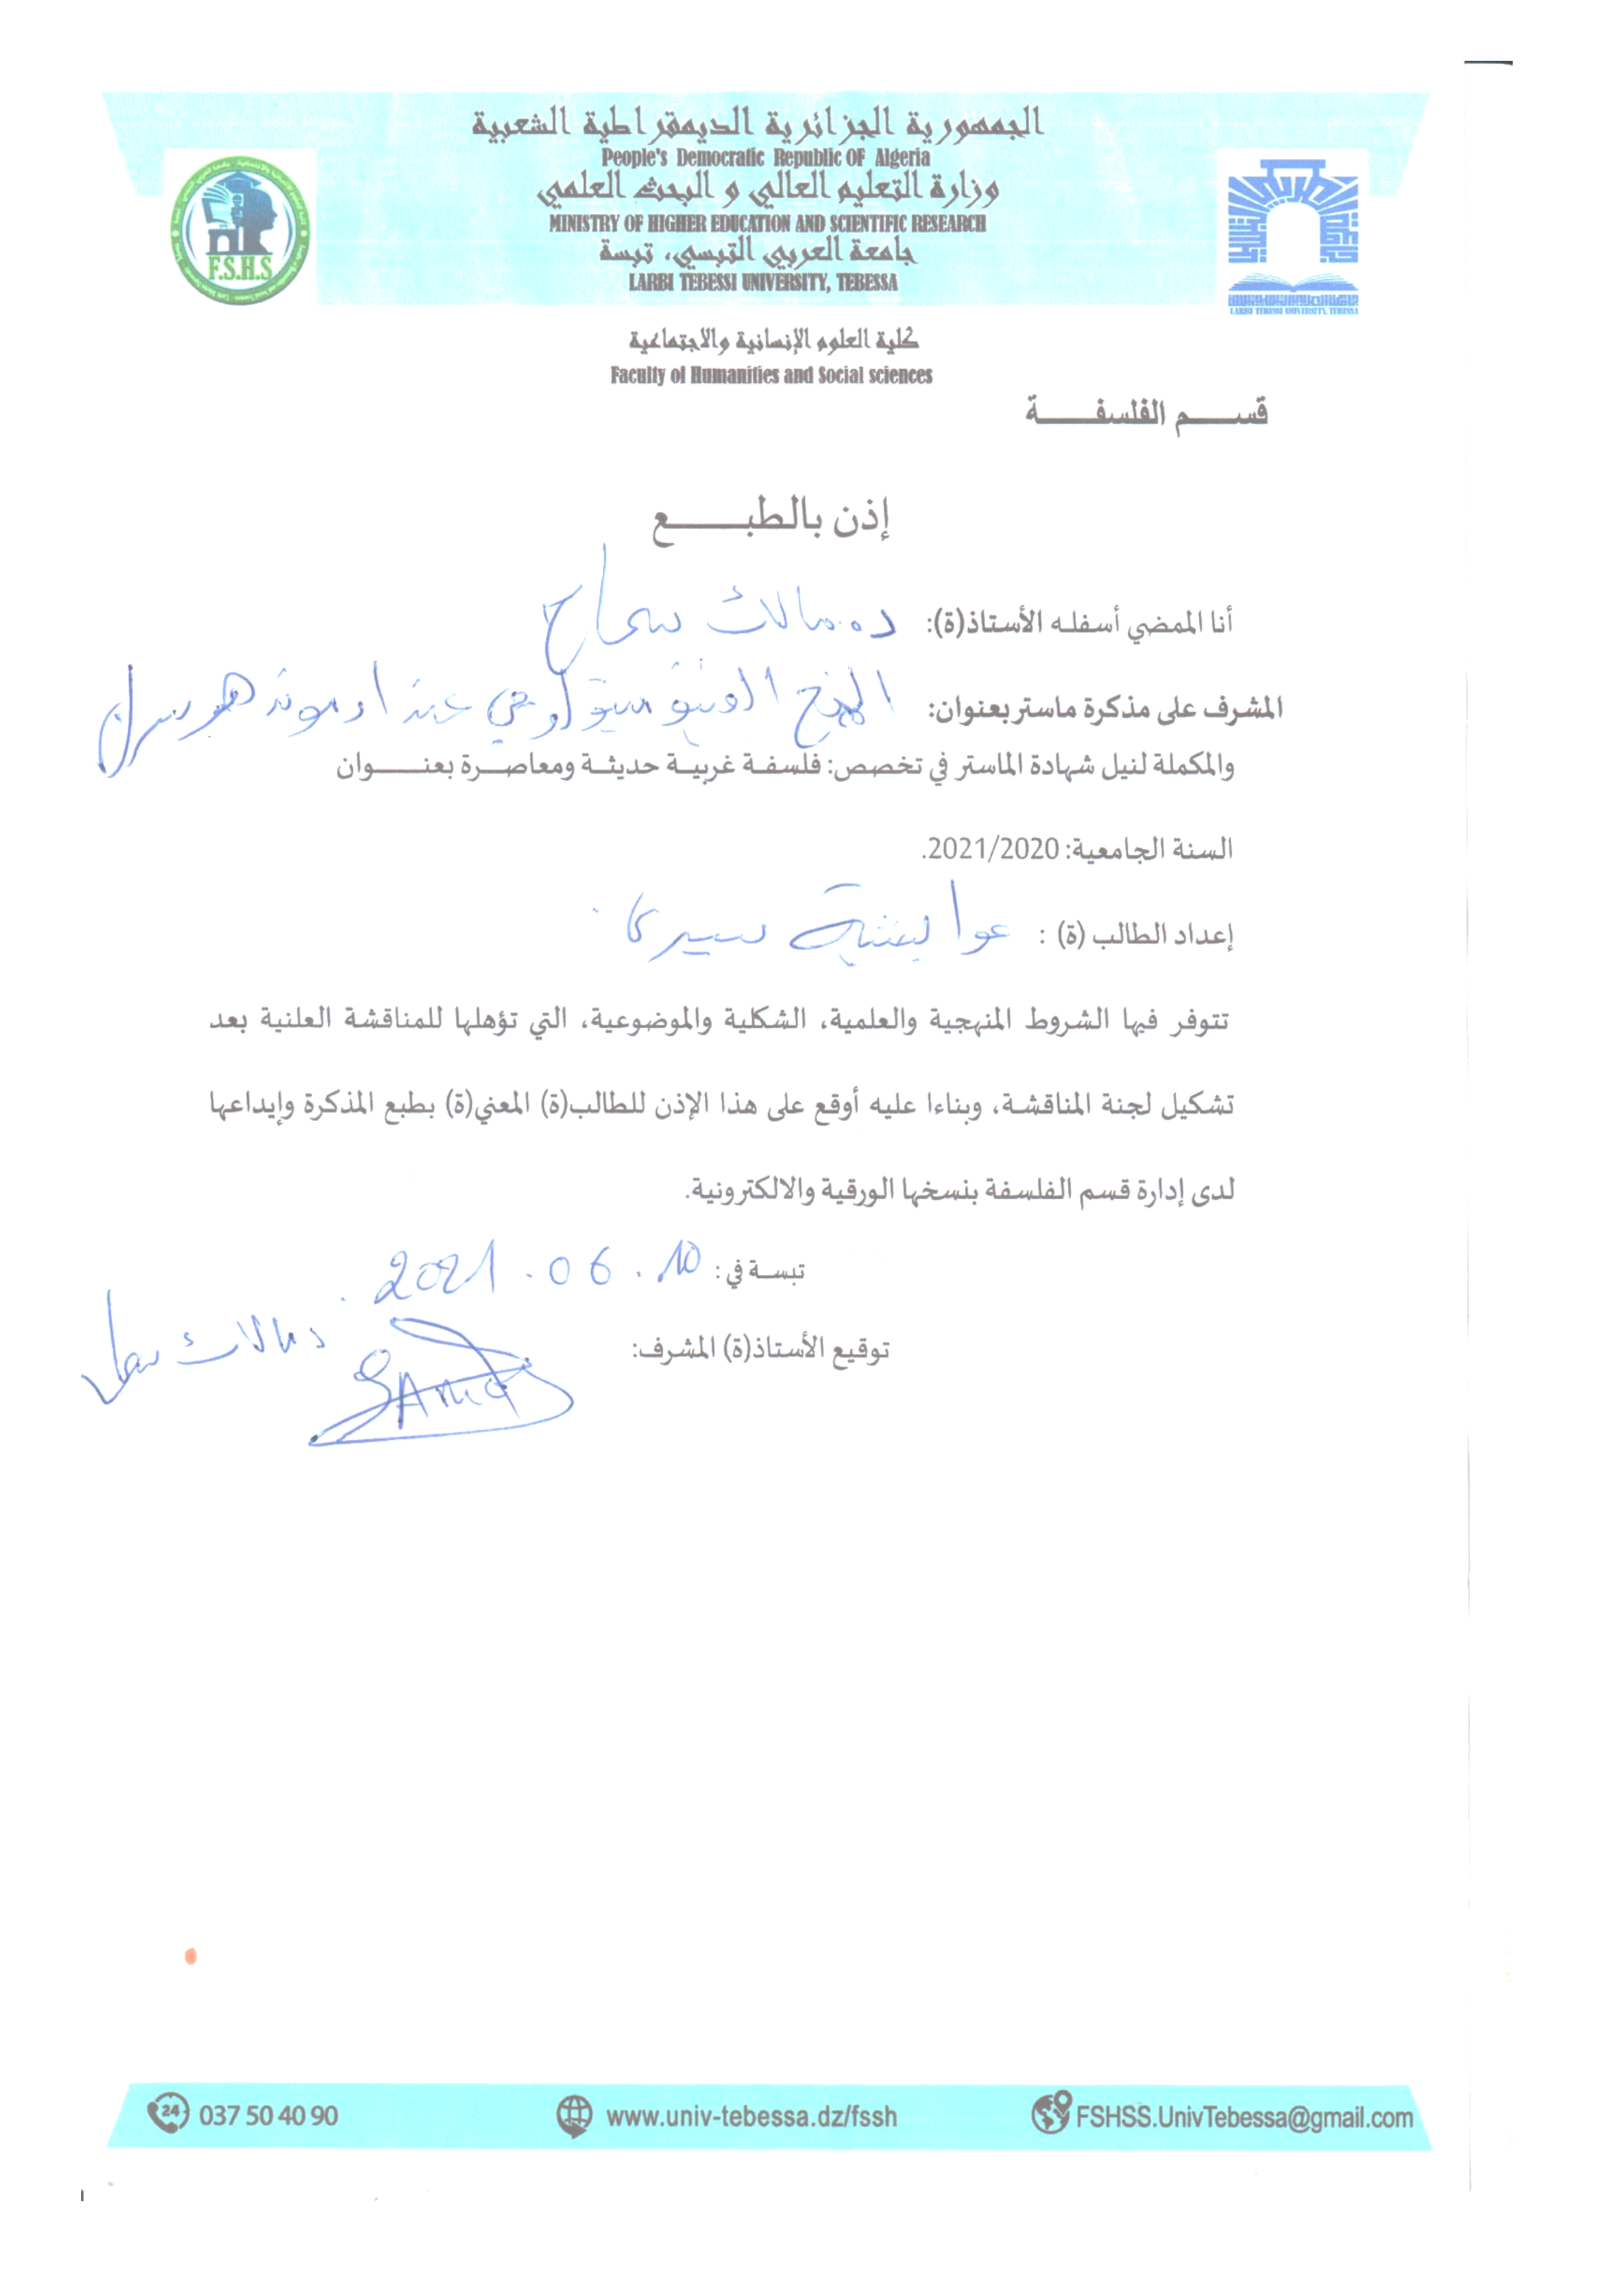 الجمهورية الجزائرية الديمقراطية الشعبية
People's Democratic Republic OF Algeria
وزارة التعليم العالي و البحث العلمي
MINISTRY OF HIGHER EDUCATION AND SCIENTIFIC RESEARCH
جامعة العربي التبسي، تبسة
LARBI TEBESSI UNIVERSITY, TEBESSA
F.S.H.S
LARBI TEBESSI UNIVERSITY, TEBESSA
كلية العلوم الإنسانية والاجتماعية
Faculty of Humanities and Social sciences
قســـم الفلسفـــة
إذن بالطبـــع
أنا الممضي أسفله الأستاذ(ة): د. مالك سماح
المشرف على مذكرة ماستر بعنوان: المنهج الفينومينولوجي عند ادموند هوسرل
والمكملة لنيل شهادة الماستر في تخصص: فلسفة غربية حديثة ومعاصرة بعنـــوان
السنة الجامعية: 2021/2020.
إعداد الطالب (ة) : عوايشية سيرى
تتوفر فيها الشروط المنهجية والعلمية، الشكلية والموضوعية، التي تؤهلها للمناقشة العلنية بعد
تشكيل لجنة المناقشة، وبناءا عليه أوقع على هذا الإذن للطالب(ة) المعني(ة) بطبع المذكرة وإيداعها
لدى إدارة قسم الفلسفة بنسخها الورقية والالكترونية.
تبسة في: 10. 06. 2021.
توقيع الأستاذ(ة) المشرف: د مالك
24 037 50 40 90
www.univ-tebessa.dz/fssh
FSHSS.UnivTebessa@gmail.com